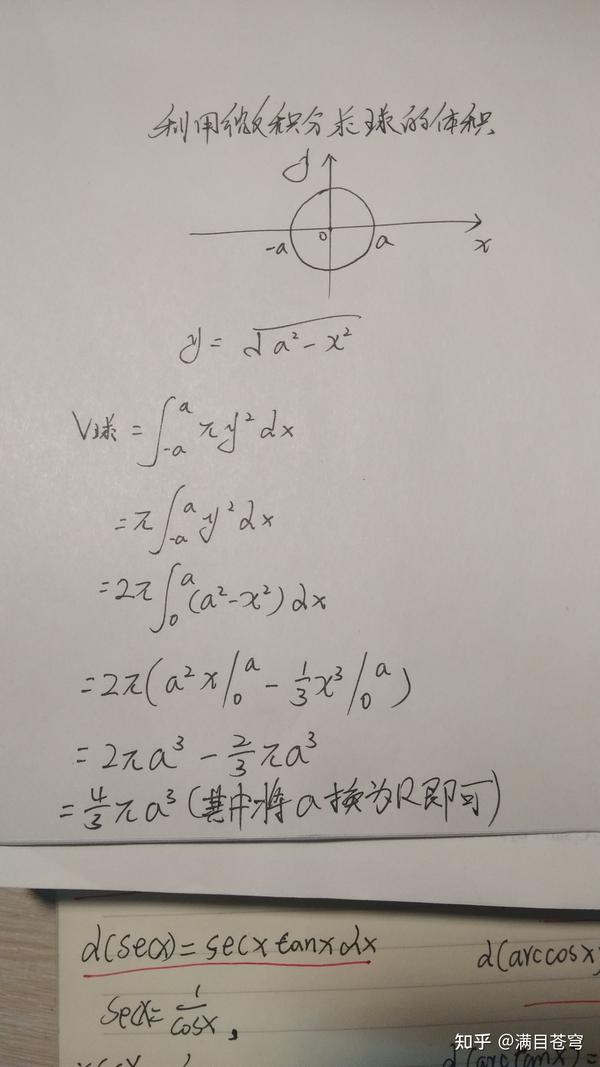 利用微积分求球的体积
y
-a 0 a x
y = √a² - x²
V球 = ∫₋ₐᵃ πy² dx
= π∫₋ₐᵃ y² dx
= 2π∫₀ᵃ (a²-x²) dx
= 2π(a²x|₀ᵃ - 1/3 x³|₀ᵃ)
= 2πa³ - 2/3 πa³
= 4/3 πa³ (其中将a换为R即可)
d(secx) = secx tanx dx d(arccosx)
secx = 1/cosx,
d(arctanx) =
知乎 @满目苍穹